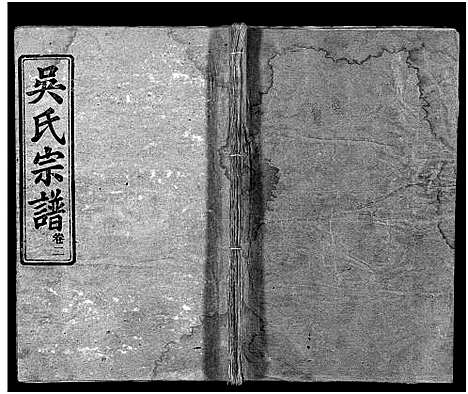 吳氏宗譜卷二